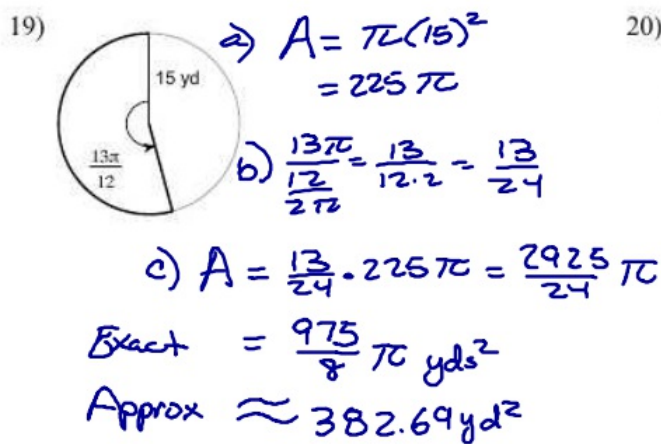 19)
20)
15 yd
13π/12
a) A = π(15)²
= 225 π
b) (13π/12)/(2π) = 13/(12·2) = 13/24
c) A = 13/24 · 225π = 2925/24 π
Exact = 975/8 π yds²
Approx ≈ 382.69 yd²